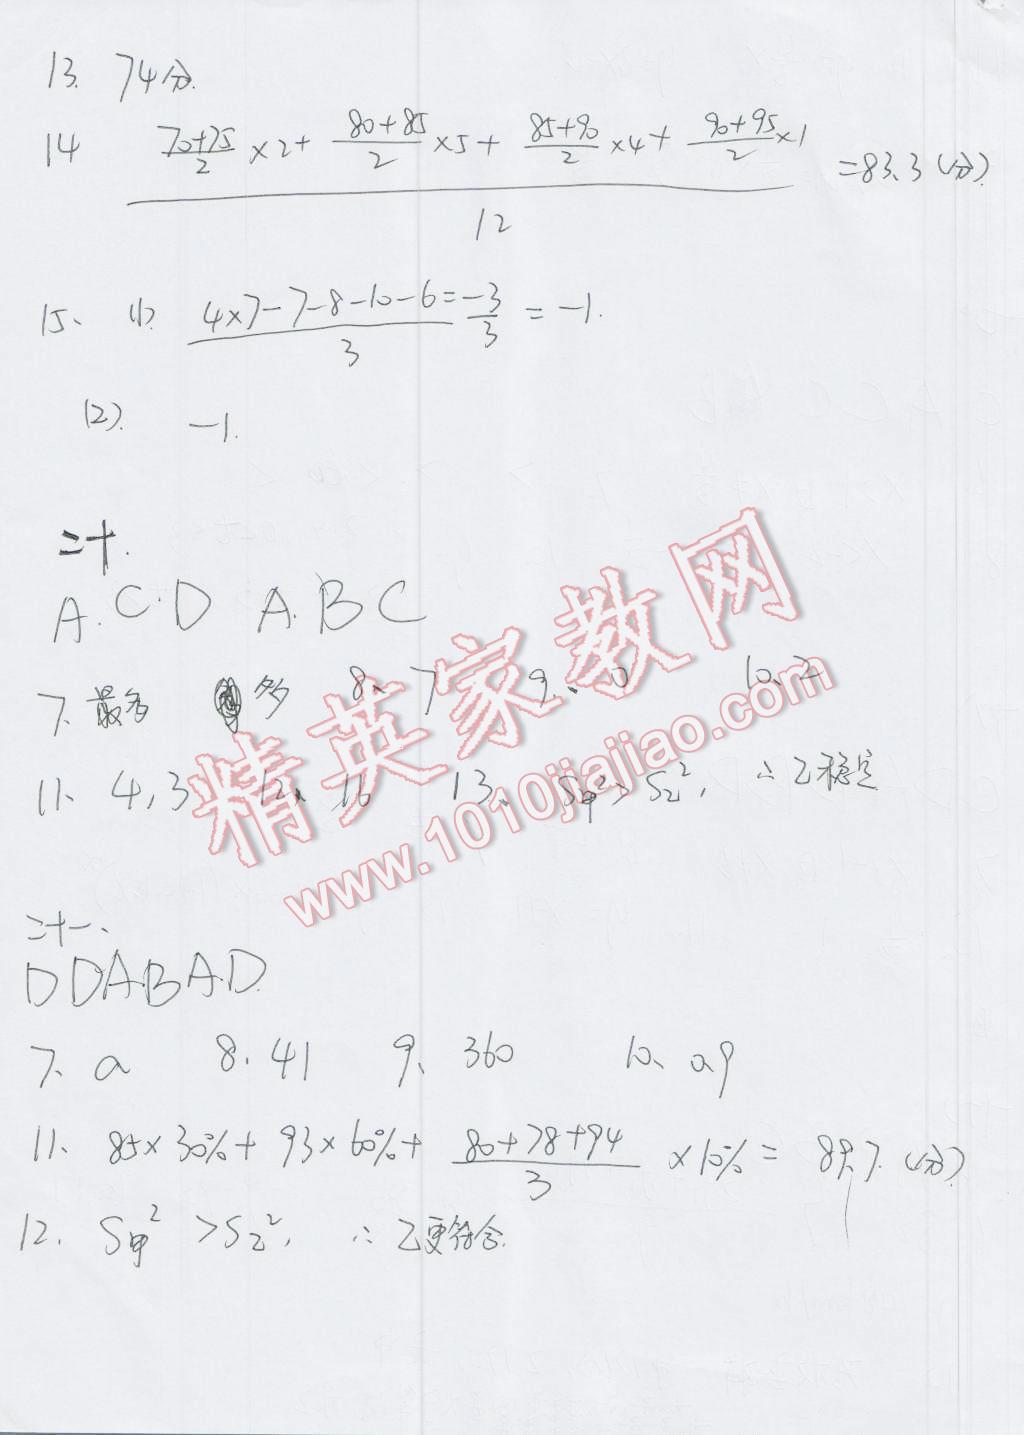 13. 74分.
14 (70+75)/2 ×2+ (80+85)/2 ×5+ (85+90)/2 ×4+ (90+95)/2 ×1 / 12 =83.3(分).
15、(1) (4×7-7-8-10-6)/3 = -3/3 = -1.
(2). -1.
二十.
A.C.D A.BC
7、最多 多 8、7 9、0 10、2
11、4,3 12、16 13、S甲²>S乙², ∴乙稳定
精英家教网
www.1010jiajiao.com
二十一、
DDABA.D.
7、a 8.41 9、360 10、0.9
11、85×30%+93×60%+ (80+78+94)/3 ×10%= 89.7(分)
12. S甲²>S乙², ∴乙更符合.